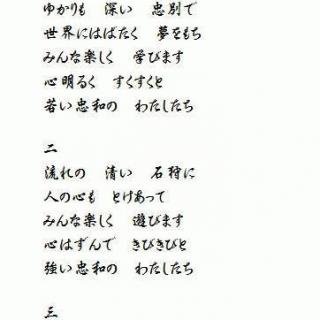 ゆかりも　深い　忠別で
世界にはばたく　夢をもち
みんな楽しく　学びます
心明るく　すくすくと
若い忠和の　わたしたち
二
流れの　清い　石狩に
人の心も　とけあって
みんな楽しく　遊びます
心はずんで　きびきびと
強い忠和の　わたしたち
三